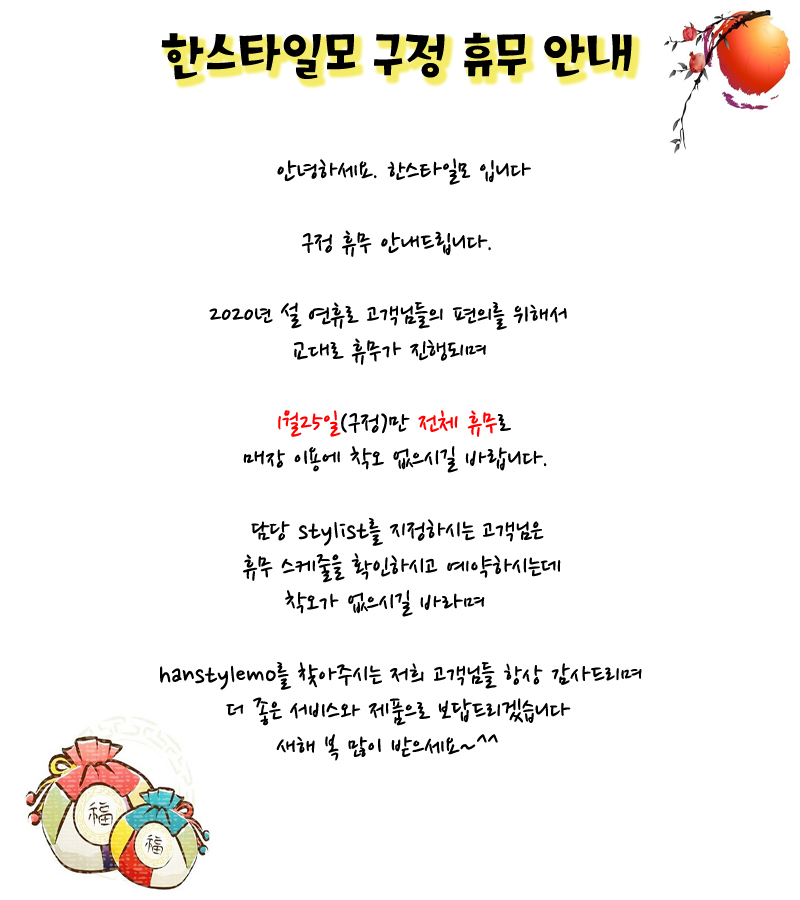 한스타일모 구정 휴무 안내
안녕하세요. 한스타일모 입니다
구정 휴무 안내드립니다.
2020년 설 연휴로 고객님들의 편의를 위해서
교대로 휴무가 진행되며
1월25일(구정)만 전체 휴무로
매장 이용에 착오 없으시길 바랍니다.
담당 stylist를 지정하시는 고객님은
휴무 스케줄을 확인하시고 예약하시는데
착오가 없으시길 바라며
hanstylemo를 찾아주시는 저희 고객님들 항상 감사드리며
더 좋은 서비스와 제품으로 보답드리겠습니다
새해 복 많이 받으세요~^^
福
福